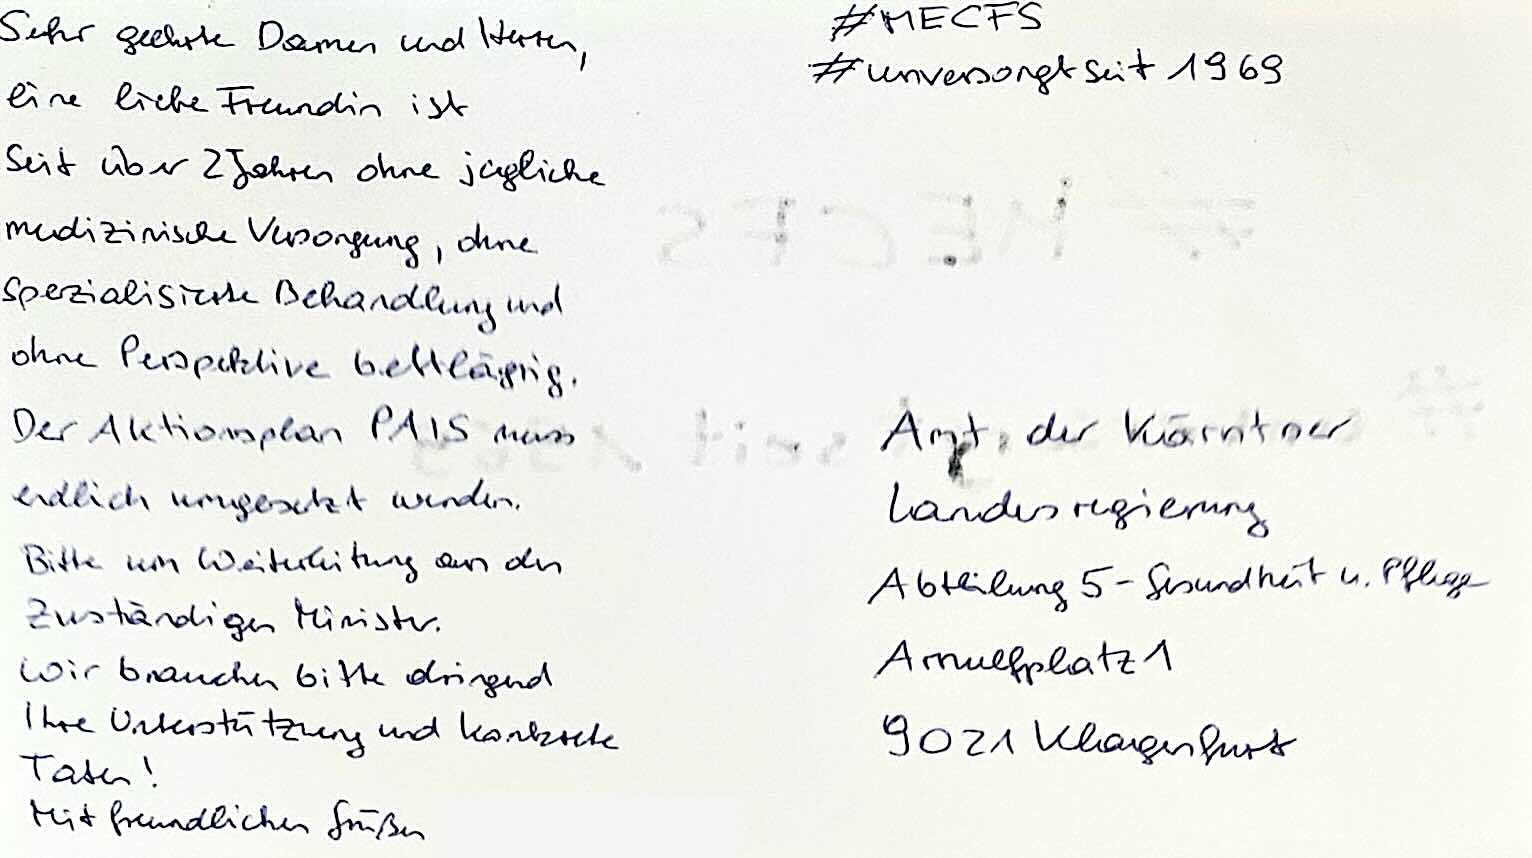 Sehr geehrte Damen und Herren,
eine liebe Freundin ist
seit über 2 Jahren ohne jegliche
medizinische Versorgung, ohne
spezialisierte Behandlung und
ohne Perspektive bettlägrig.
Der Aktionsplan PAIS muss
endlich umgesetzt werden.
Bitte um Weiterleitung an den
Zuständigen Minister.
Wir brauchen bitte dringend
Ihre Unterstützung und konkrete
Taten!
Mit freundlichen Grüßen
#MECFS
#unversorgtseit1969
Amt der Kärntner
Landesregierung
Abteilung 5 - Gesundheit u. Pflege
Arnulfplatz 1
9021 Klagenfurt